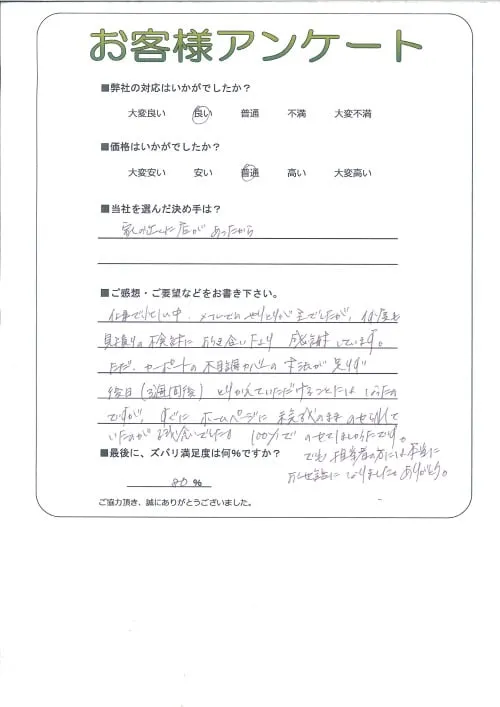 お客様アンケート
■弊社の対応はいかがでしたか？
大変良い 良い 普通 不満 大変不満
■価格はいかがでしたか？
大変安い 安い 普通 高い 大変高い
■当社を選んだ決め手は？
家の近くに店があったから
■ご感想・ご要望などをお書き下さい。
仕事で忙しい中、メールでのやりとりが主でしたが、何度も
見積りの検討に お付き合い下さり 感謝しています。
ただ、カーポートの木目調カバーの寸法が足りず
後日（3週間後） とりかえていただけることにはなったの
ですが、すぐに ホームページに 未完成のまま のせられて
いたのが 100%で のせてほしかったです。
■最後に、ズバリ満足度は何%ですか？
でも 担当者の方には本当に
お世話になりました。ありがとう。
80 %
ご協力頂き、誠にありがとうございました。